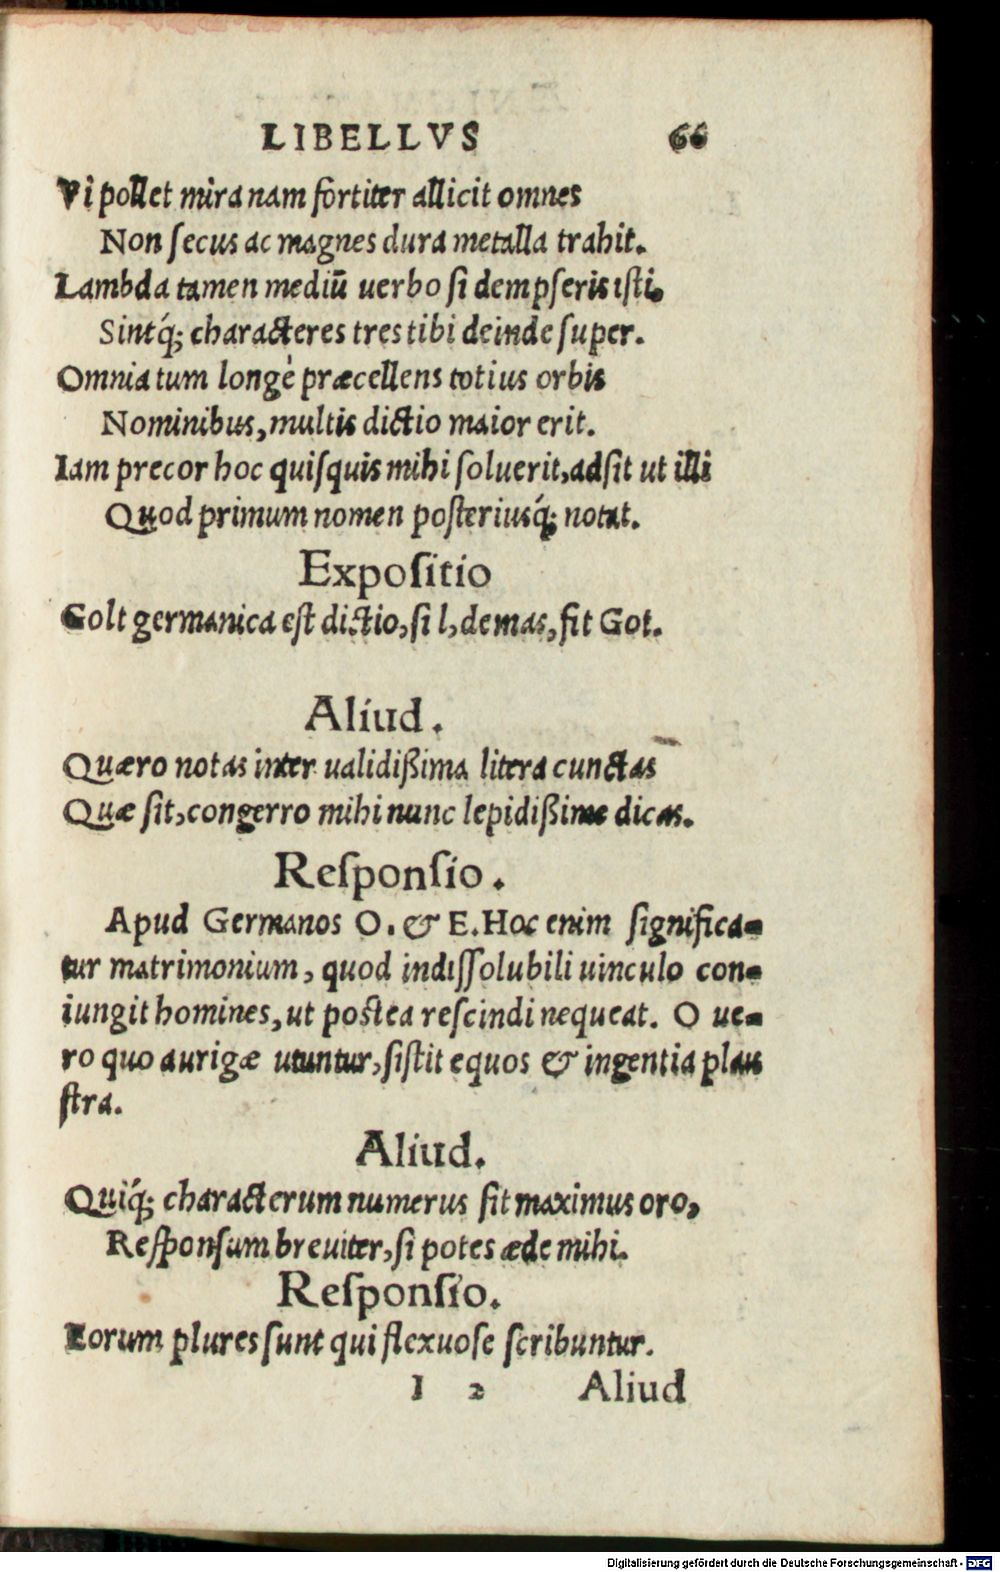 LIBELLVS 66
Vi pollet mira nam fortiter allicit omnes
Non ſecus ac magnes dura metalla trahit.
Lambda tamen mediū uerbo ſi dempſeris iſti,
Sintq́; characteres tres tibi deinde ſuper.
Omnia tum longè præcellens totius orbis
Nominibus, multis dictio maior erit.
Iam precor hoc quiſquis mihi ſoluerit, adſit ut illi
Quod primum nomen poſteriusq́; notat.
Expoſitio
Golt germanica eſt dictio, ſi l, demas, fit Got.
Aliud.
Quæro notas inter ualidißima litera cunctas
Quæ ſit, congerro mihi nunc lepidißime dicas.
Reſponſio.
Apud Germanos O. & E. Hoc enim ſignifica-
tur matrimonium, quod indiſſolubili uinculo con-
iungit homines, ut poſtea reſcindi nequeat. O ue-
ro quo aurigæ utuntur, ſiſtit equos & ingentia plau
ſtra.
Aliud.
Quiq́; characterum numerus ſit maximus oro,
Reſponſum breuiter, ſi potes æde mihi.
Reſponſio.
Eorum plures ſunt qui flexuoſe ſcribuntur.
I 2 Aliud
Digitalisierung gefördert durch die Deutsche Forschungsgemeinschaft - DFG